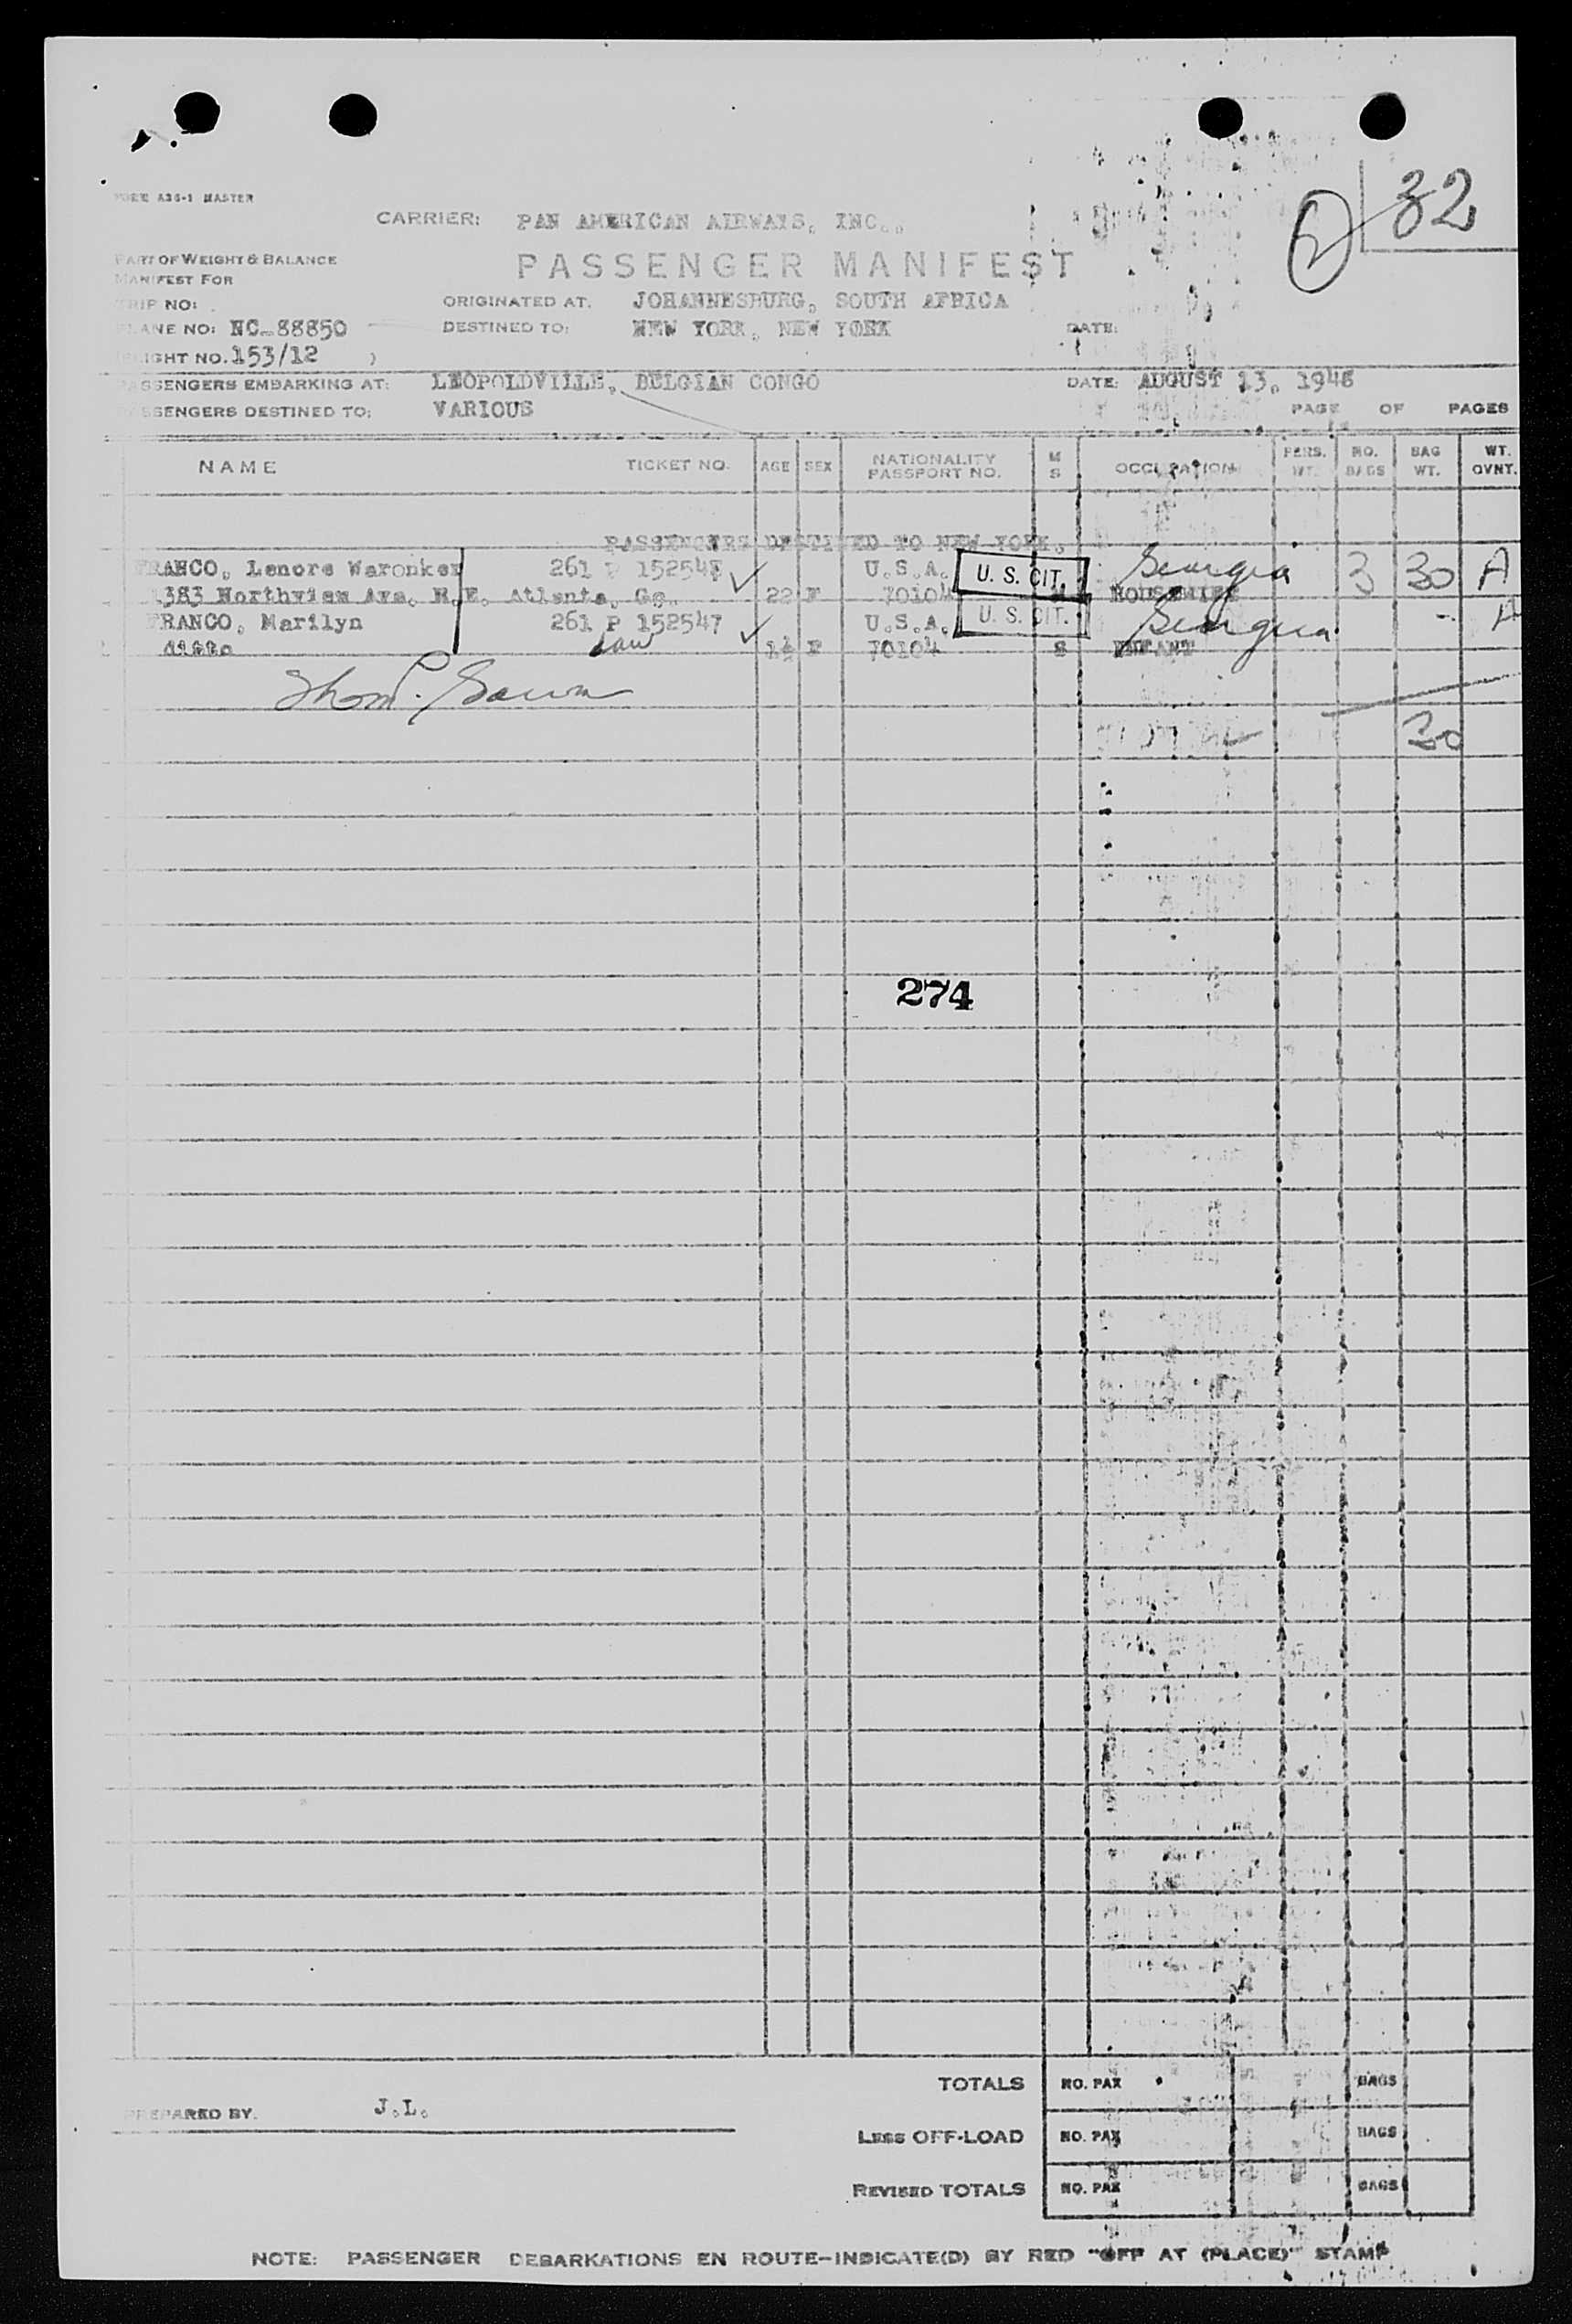 FORM A36-1 MASTER
32
CARRIER: PAN AMERICAN AIRWAYS, INC.,
PART OF WEIGHT & BALANCE
MANIFEST FOR
PASSENGER MANIFEST
TRIP NO:
ORIGINATED AT: JOHANNESBURG, SOUTH AFRICA
PLANE NO: NC-88850
DESTINED TO: NEW YORK, NEW YORK
DATE:
FLIGHT NO. 153/12 )
PASSENGERS EMBARKING AT: LEOPOLDVILLE, BELGIAN CONGO
DATE: AUGUST 13, 1948
PASSENGERS DESTINED TO: VARIOUS
PAGE OF PAGES
NAME TICKET NO. AGE SEX NATIONALITY PASSPORT NO. M S OCCUPATION PERS. WT. NO. BAGS BAG WT. WT. OVNT.
PASSENGERS DESTINED TO NEW YORK.
FRANCO, Lenore Waronker 261 P 152548 U.S.A. U. S. CIT. Georgia 3 30 A
1383 Northview Ave. N.E. Atlanta, Ga. 22 F 70104 M HOUSEWIFE
FRANCO, Marilyn 261 P 152547 U.S.A. U. S. CIT. Georgia - A
ditto 1½ F 70104 S INFANT
30
274
TOTALS NO. PAX BAGS
PREPARED BY. J.L.
LESS OFF-LOAD NO. PAX BAGS
REVISED TOTALS NO. PAX BAGS
NOTE: PASSENGER DEBARKATIONS EN ROUTE-INDICATE(D) BY RED "OFF AT (PLACE)" STAMP